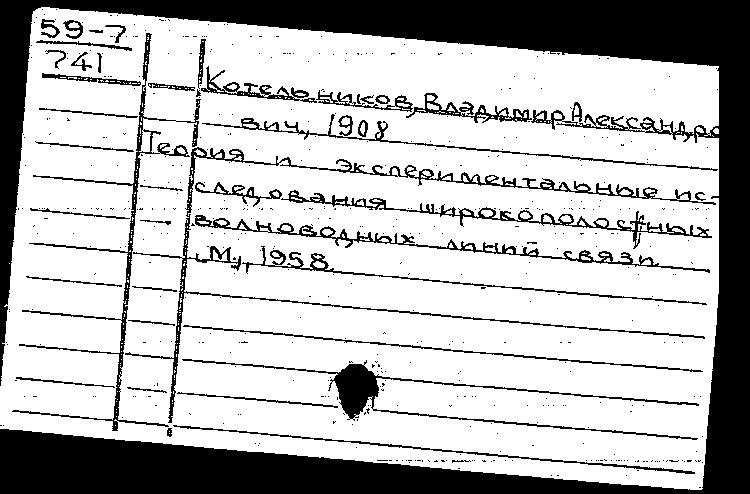 59-7
741
Котельников, Владимир Александро
вич, 1908
Теория и экспериментальные ис-
следования широкополостных
волноводных линий связи
М., 1958